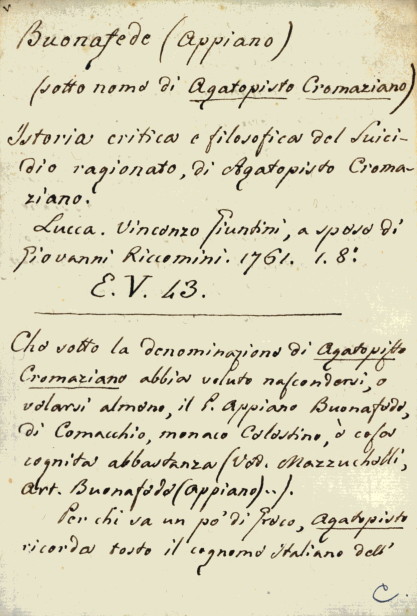 Buonafede (Appiano)
(sotto nome di Agatopisto Cromaziano)
Istoria critica e filosofica del Suici-
dio ragionato, di Agatopisto Croma-
ziano.
Lucca. Vincenzo Giuntini, a spese di
Giovanni Riccomini. 1761. 1. 8º.
E. V. 43.
Che sotto la denominazione di Agatopisto
Cromaziano abbia voluto nascondersi, o
velarsi almeno, il P. Appiano Buonafede,
di Comacchio, monaco Celestino, è cosa
cognita abbastanza (Ved. Mazzuchelli,
art. Buonafede (Appiano)..).
Per chi sa un pò di Greco, Agatopisto
ricorda tosto il cognome italiano dell'
C.